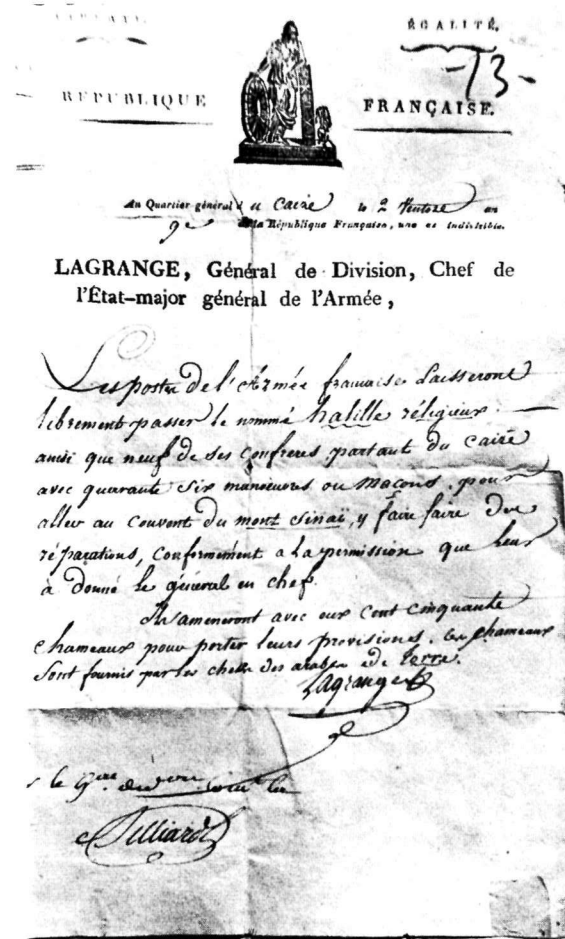 ÉGALITÉ.
-13-
RÉPUBLIQUE FRANÇAISE.
Au Quartier-général au Caire le 2 Ventose an
9e de la République Française, une et indivisible.
LAGRANGE, Général de Division, Chef de
l'État-major général de l'Armée,
Les postes de l'Armée française Laisseront
librement passer le nommé halille réligieux
ainsi que neuf de ses confreres partant du caire
avec quarante six manœuvres ou maçons, pour
aller au couvent du mont sinaï, y faire faire des
réparations, conformément a La permission que leur
à donné le général en chef.
Ils ameneront avec eux cent cinquante
chameaux pour porter leurs provisions. les chameaux
sont fournis par les cheks des arabes de terre.
Lagrange
Belliard